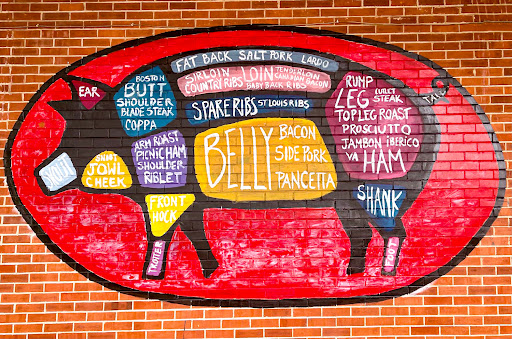 FAT BACK SALT PORK LARDO
SIRLOIN
COUNTRY RIBS
LOIN
BABY BACK RIBS
TENDERLOIN
CANADIAN BACON
SPARE RIBS ST LOUIS RIBS
EAR
BOSTON
BUTT
SHOULDER
BLADE STEAK
COPPA
ARM ROAST
PICNIC HAM
SHOULDER
RIBLET
SNOUT
JOWL
CHEEK
BELLY
BACON
SIDE PORK
PANCETTA
RUMP
LEG
CUTLET
STEAK
TOP LEG ROAST
PROSCIUTTO
JAMBON IBERICO
VA HAM
TAIL
FRONT
HOCK
SHANK
TROTTER
FOOT